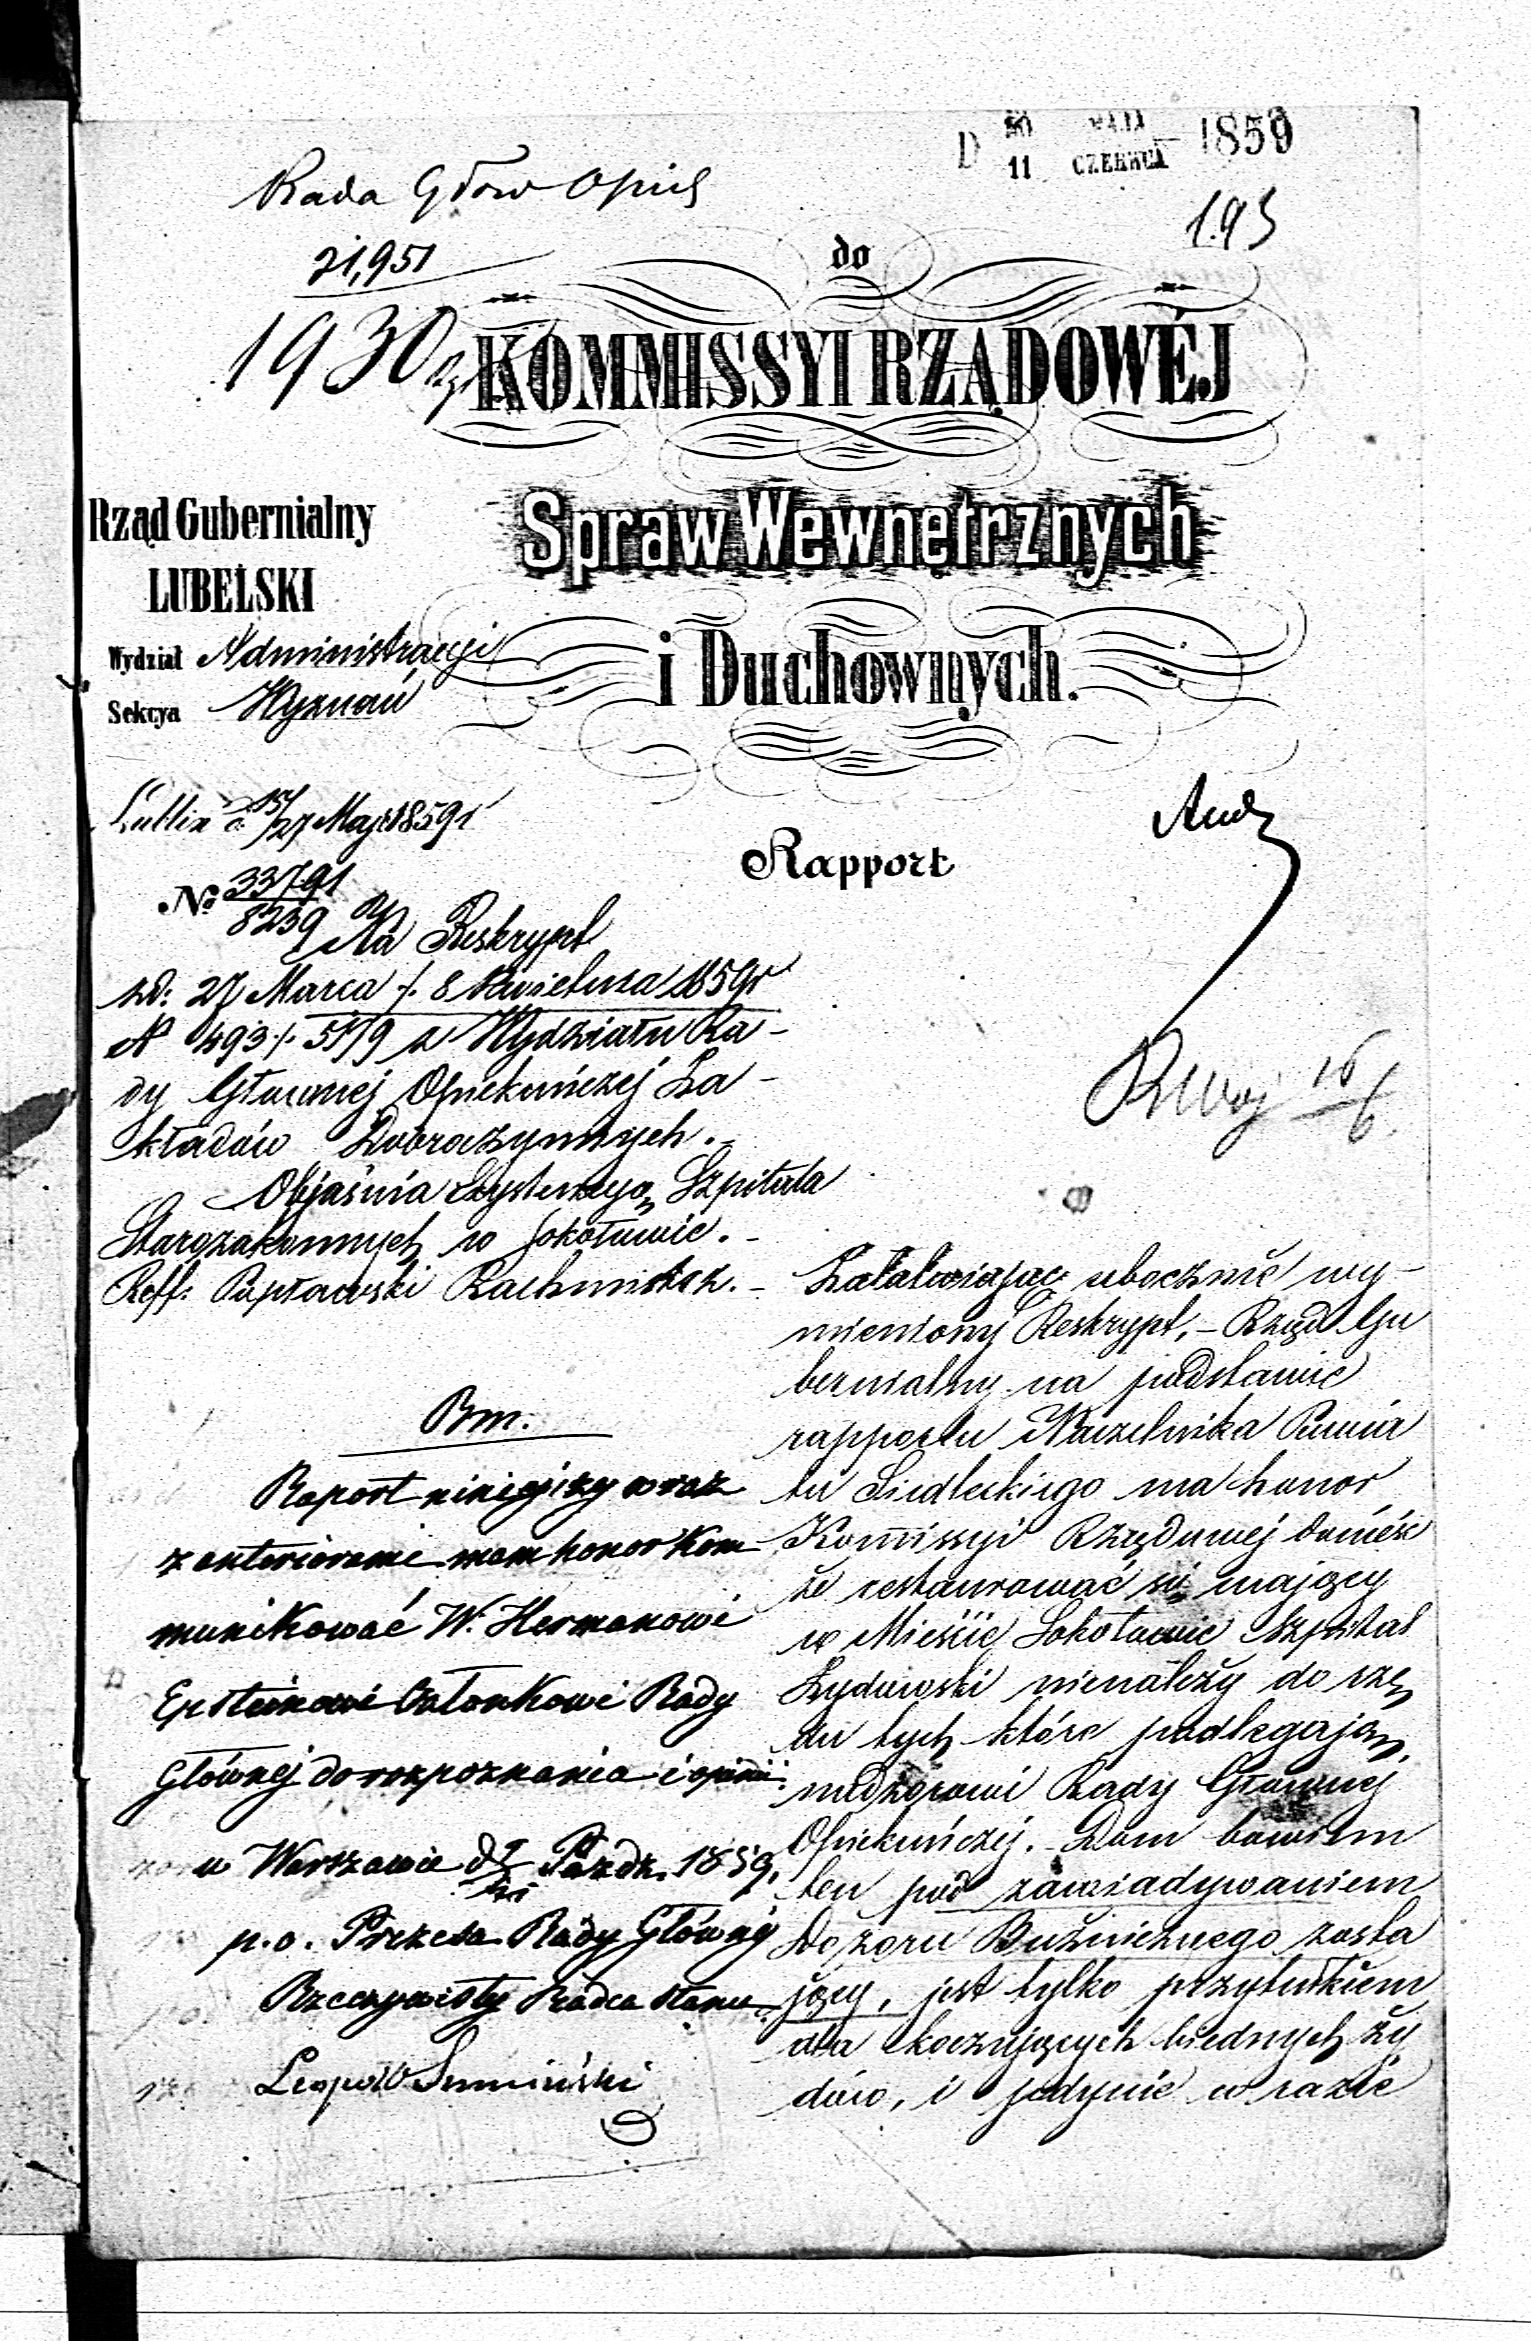 D 30 MAJA 1859
11 CZERWCA
Rada Głów Opiek
21,951
1930
193
do
KOMMISSYI RZĄDOWÉJ
Spraw Wewnętrznych
i Duchownych.
Rząd Gubernialny
LUBELSKI
Wydział Administracyi
Sekcya Wyznań
Lublin d. 15/27 Maja 1859 r
No 33791
8239
Rapport
Na Reskrypt
z d: 27 Marca /. 8 Kwietnia 1859 r
N 493 /. 5179 z Wydziału Ra-
dy Głównej Opiekuńczej Za-
kładów Dobroczynnych.-
Objaśnia Szpitala
Starozakonnych w Sokołowie.-
Reff: Rachmistrz.-
16/6
Bm.
Raport niniejszy wraz
z anteriorami mam honor Kom
munikować W. Hermanowi
Epsteinowi Członkowi Rady
Głównej do rozpoznania i opinii.
w Warszawie d Paźdz. 1859.
p.o. Prezesa Rady Głównej
Rzeczywisty Radca Stanu
Leopold Sumiński
Załatwiając ubocznie wy-
mieniony Reskrypt,- Rząd Gu
bernialny na podstawie
rapportu Naczelnika Powia
tu Siedleckiego ma honor
Kommissyi Rządowej donieść
że restaurować się mający
w Mieście Sokołowie Szpital
Żydowski nienależy do rzę
du tych które podlegają
nadzorowi Rady Głównej
Opiekuńczej.- Dom bowiem
ten pod zawiadywaniem
Dozoru Bużnicznego zosta
jący, jest tylko przytułkiem
dla koczujących biednych ży
dów, i jedynie w razie